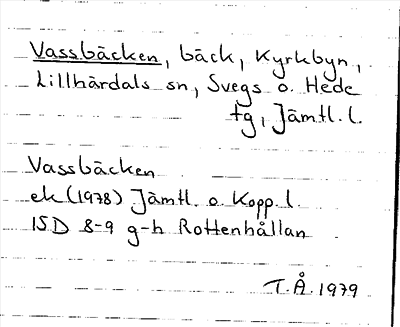 Vassbäcken, bäck, Kyrkbyn,
Lillhärdals sn, Svegs o. Hede
tg, Jämtl. l.
Vassbäcken
ek (1978) Jämtl. o. Kopp. l.
15D 8-9 g-h Rottenhållan
T.Å. 1979